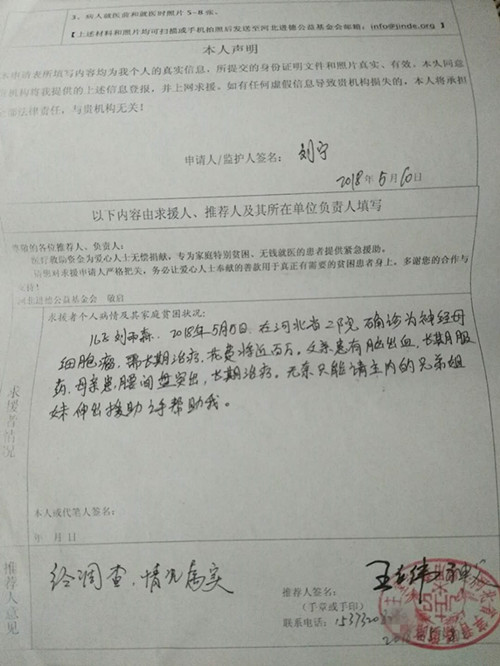 3、病人就医前和就医时照片 5-8 张。
【上述材料和照片均可扫描或手机拍照后发送至河北进德公益基金会邮箱：info@jinde.org】
本人声明
本申请表所填写内容均为我个人的真实信息，所提交的身份证明文件和照片真实、有效。本人同意
机构将我提供的上述信息登报，并上网求援。如有任何虚假信息导致贵机构损失的，本人将承担
法律责任，与贵机构无关！
申请人/监护人签名：刘宁
2018年5月10日
以下内容由求援人、推荐人及其所在单位负责人填写
尊敬的各位推荐人、负责人：
医疗救助基金为爱心人士无偿捐献，专为家庭特别贫困、无钱就医的患者提供紧急援助。
请您对求援申请人严格把关，务必让爱心人士奉献的善款用于真正有需要的贫困患者身上。多谢您的合作与
支持！
河北进德公益基金会 敬启
求援者情况
求援者个人病情及其家庭贫困状况：
儿子刘雨森，2018年5月 日，在河北省二院确诊为神经母
细胞瘤，需长期治疗，花费将近百万。父亲患有脑出血，长期服
药，母亲患腰间盘突出，长期治疗。无奈只能请主内的兄弟姐
妹伸出援助之手帮助我。
本人或代笔人签名：
年 月 日
推荐人意见
经调查，情况属实
推荐人签名：王 伟
（手章或手印）
联系电话：1537320
2018